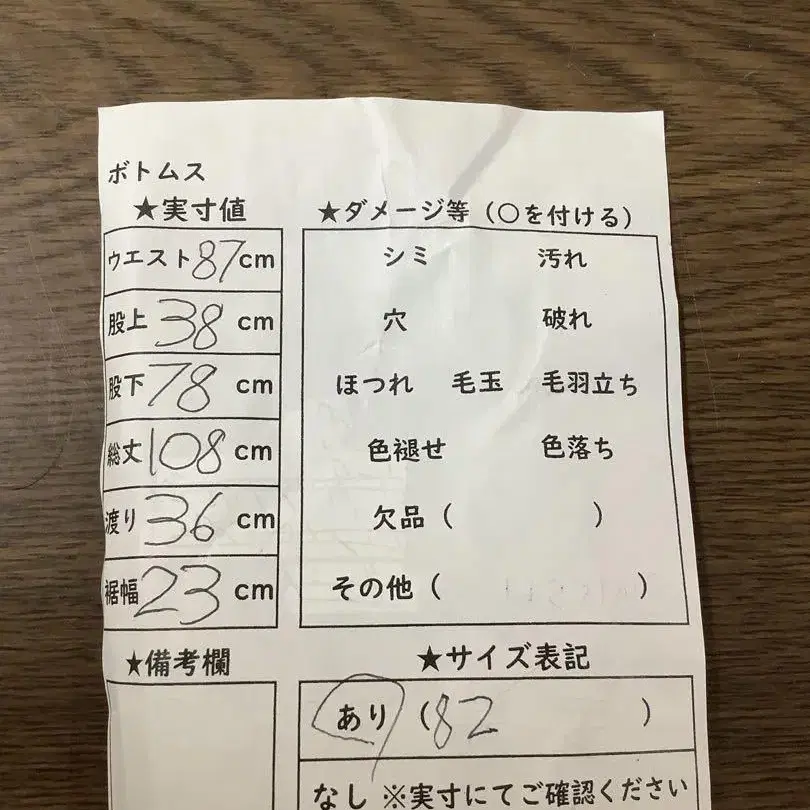 ボトムス
★実寸値
ウエスト87cm
股上38cm
股下78cm
総丈108cm
渡り36cm
裾幅23cm
★備考欄
★ダメージ等（○を付ける）
シミ 汚れ
穴 破れ
ほつれ 毛玉 毛羽立ち
色褪せ 色落ち
欠品（ ）
その他（ ）
★サイズ表記
あり（82 ）
なし ※実寸にてご確認ください